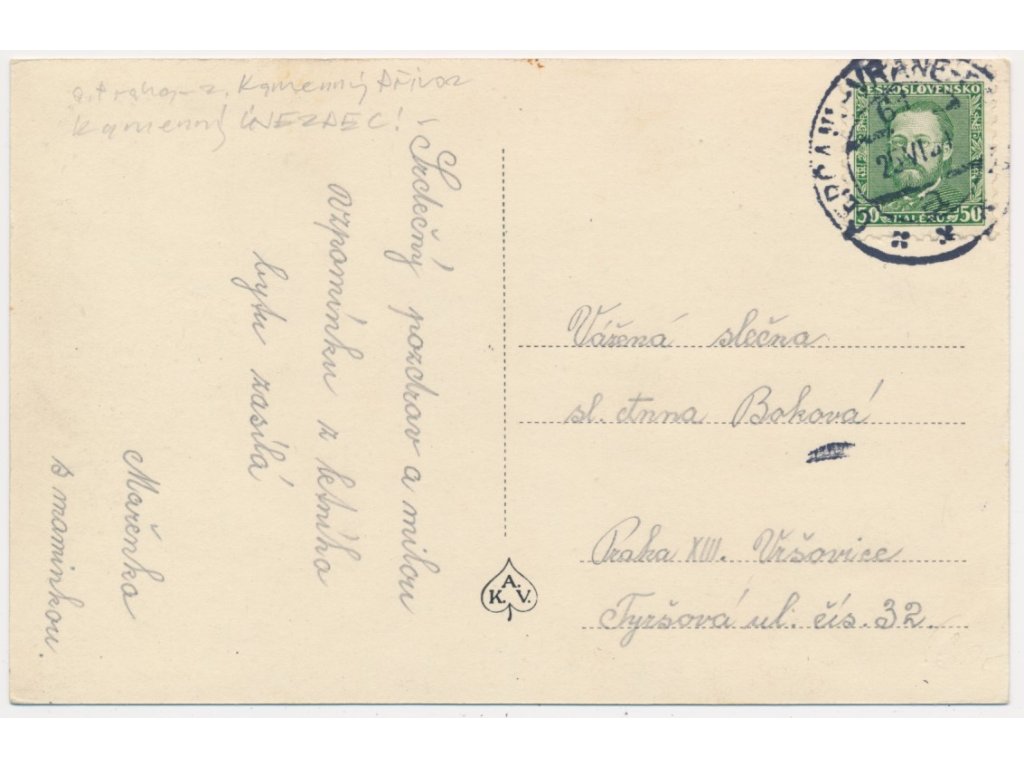 Kamenný Přívoz
Kamenný ÚJEZDEC!
Srdečný pozdrav a milou
vzpomínku z letního
bytu zasílá
Mařenka
s maminkou.
K. A. V.
ČESKOSLOVENSKO
50 HALÉŘŮ 50
Vážená slečna
sl. Anna Boková
Praha XIII. Vršovice
Tyršová ul. čís. 32.